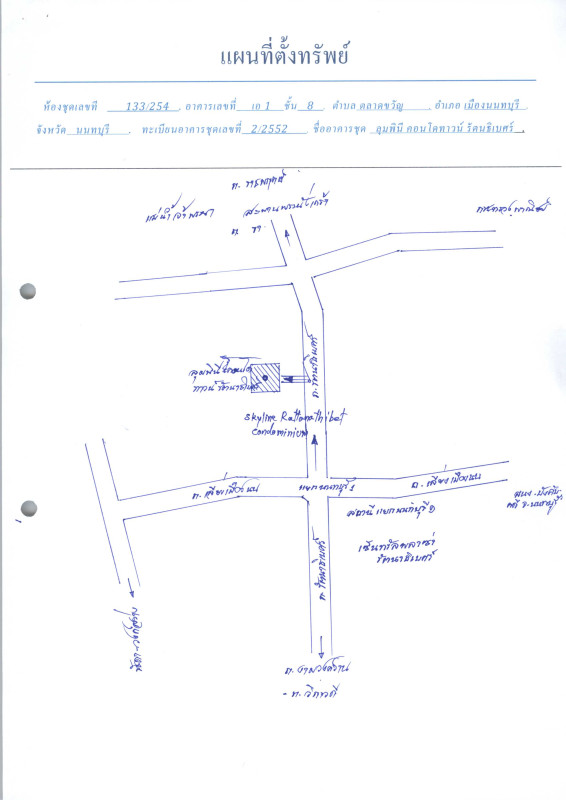 แผนที่ตั้งทรัพย์
ห้องชุดเลขที่ 133/254 อาคารเลขที่ เอ 1 ชั้น 8 ตำบล ตลาดขวัญ อำเภอ เมืองนนทบุรี
จังหวัด นนทบุรี ทะเบียนอาคารชุดเลขที่ 2/2552 ชื่ออาคารชุด ลุมพินี คอนโดทาวน์ รัตนธิเบศร์
ถ. ราชพฤกษ์
แม่น้ำเจ้าพระยา
สะพานพระนั่งเกล้า
กระทรวงพาณิชย์
ถ.รัตนาธิเบศร์
ลุมพินีคอนโด
ทาวน์ รัตนาธิเบศร์
Skyline Rattanathibet
Condominium
แยกนนทบุรี 1
ถ. เลี่ยงเมืองนน
ถ. เลี่ยงเมืองนน
สถานี แยกนนทบุรี 1
เซ็นทรัลพลาซ่า
รัตนาธิเบศร์
ถ. รัตนาธิเบศร์
ถ. งามวงศ์วาน
- ถ. วิภาวดี